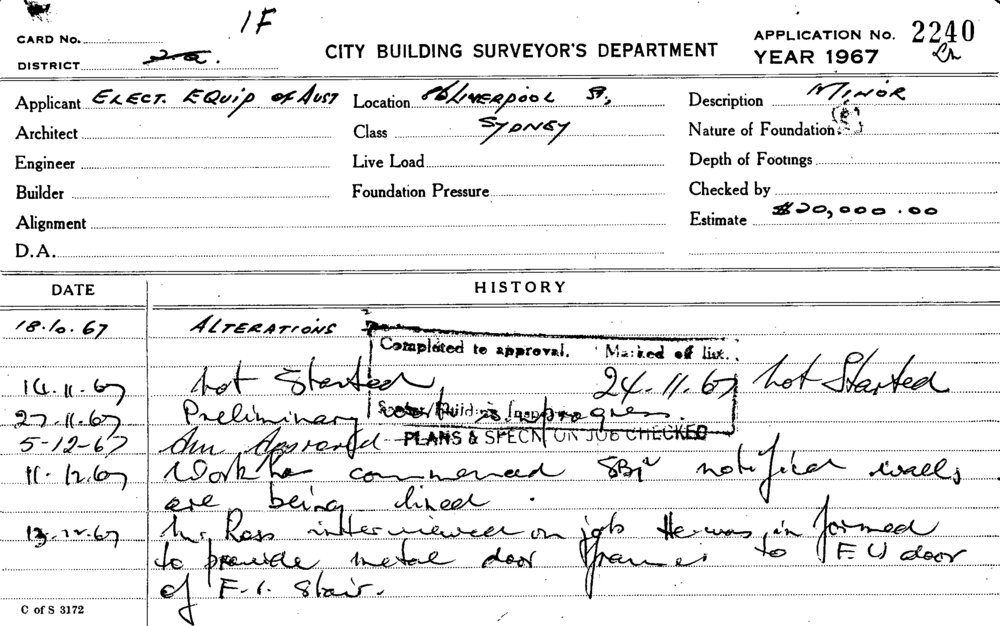 1F
CARD No.
DISTRICT 2a.
CITY BUILDING SURVEYOR'S DEPARTMENT
APPLICATION No. 2240
YEAR 1967
Applicant ELECT. EQUIP of AUST
Location 86 LIVERPOOL ST,
Description MINOR
Architect
Class SYDNEY
Nature of Foundation
Engineer
Live Load
Depth of Footings
Builder
Foundation Pressure
Checked by
Alignment
Estimate $20,000.00
D.A.
DATE HISTORY
18.10.67 ALTERATIONS
Completed to approval. Marked off list.
14.11.67 Not Started 24.11.67 Not Started
27.11.67 Preliminary work is in progress.
PLANS & SPECN ON JOB CHECKED
5-12-67 Am Approved
11.12.67 Work has commenced notified walls
are being lined.
13.12.67 Mr Ross interviewed on job He was informed
to provide metal door frames to door
of F.I. Stair.
C of S 3172